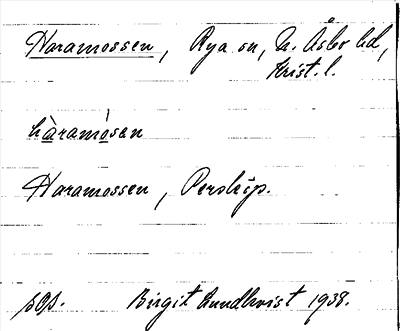 Haramossen, Rya sn, N. Åsbo hd,
Krist. l.
hàramòsen
Haramossen, Perstorp.
Birgit Lundkvist 1938.